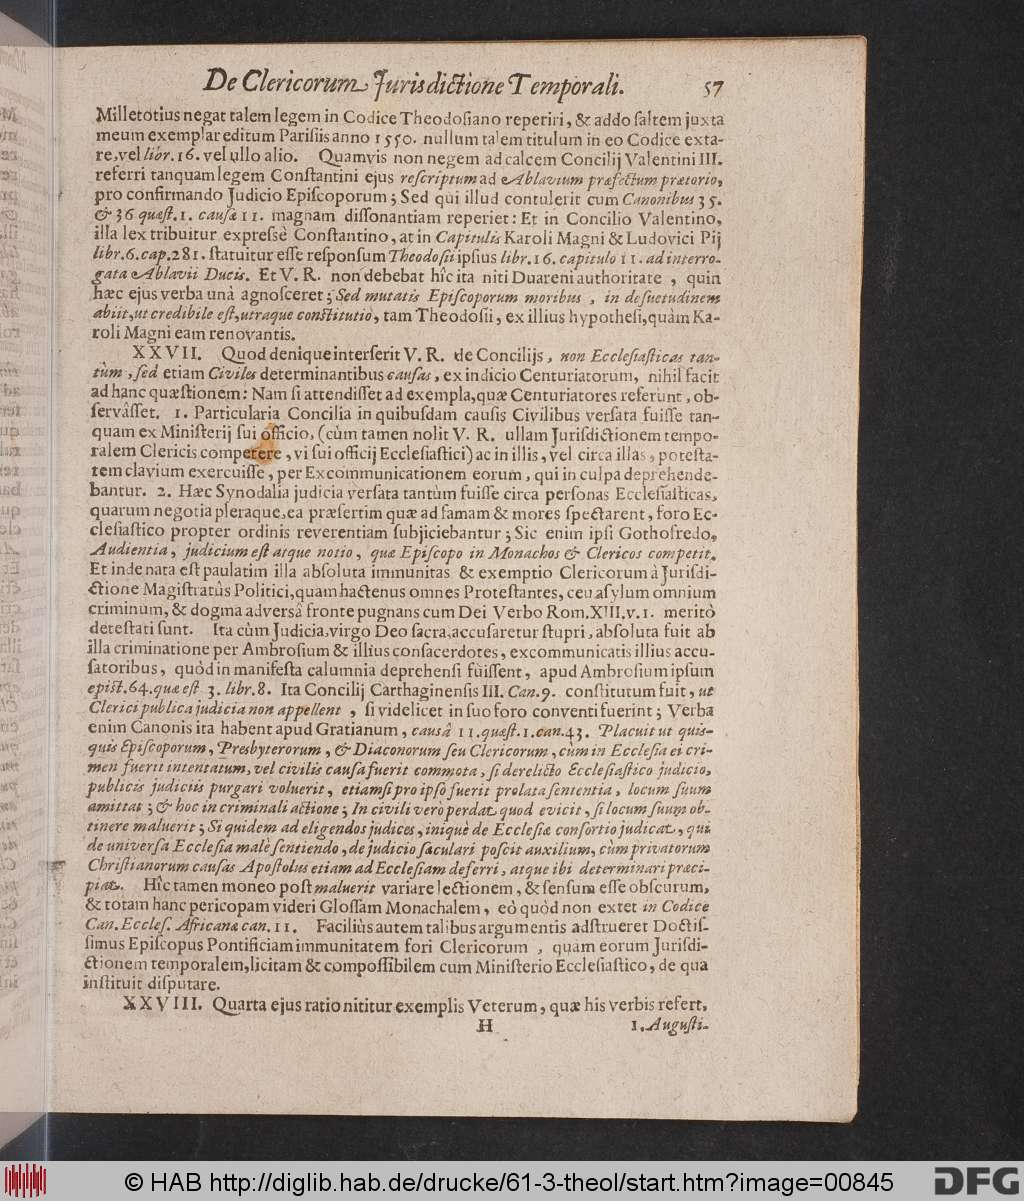 De Clericorum Jurisdictione Temporali. 57
Milletotius negat talem legem in Codice Theodosiano reperiri, & addo saltem juxta
meum exemplar editum Parisiis anno 1550. nullum talem titulum in eo Codice exta-
re, vel libr. 16. vel ullo alio. Quamvis non negem ad calcem Concilij Valentini III.
referri tanquam legem Constantini ejus rescriptum ad Ablavium præfectum prætorio,
pro confirmando Judicio Episcoporum; Sed qui illud contulerit cum Canonibus 35.
& 36 quæst. 1. causâ 11. magnam dissonantiam reperiet: Et in Concilio Valentino,
illa lex tribuitur expressè Constantino, at in Capitulis Karoli Magni & Ludovici Pij
libr. 6. cap. 281. statuitur esse responsum Theodosii ipsius libr. 16. capitulo 11. ad interro-
gata Ablavii Ducis. Et V. R. non debebat hîc ita niti Duareni authoritate, quin
hæc ejus verba unà agnosceret; Sed mutatis Episcoporum moribus, in desuetudinem
abiit, ut credibile est, utraque constitutio, tam Theodosii, ex illius hypothesi, quàm Ka-
roli Magni eam renovantis.
XXVII. Quod denique interserit V. R. de Concilijs, non Ecclesiasticas tan-
tùm, sed etiam Civiles determinantibus causas, ex indicio Centuriatorum, nihil facit
ad hanc quæstionem: Nam si attendisset ad exempla, quæ Centuriatores referunt, ob-
servâsset. 1. Particularia Concilia in quibusdam causis Civilibus versata fuisse tan-
quam ex Ministerij sui officio, (cùm tamen nolit V. R. ullam Jurisdictionem tempo-
ralem Clericis competere, vi sui officij Ecclesiastici) ac in illis, vel circa illas, potesta-
tem clavium exercuisse, per Excommunicationem eorum, qui in culpa deprehende-
bantur. 2. Hæc Synodalia judicia versata tantùm fuisse circa personas Ecclesiasticas,
quarum negotia pleraque, ea præsertim quæ ad famam & mores spectarent, foro Ec-
clesiastico propter ordinis reverentiam subjiciebantur; Sic enim ipsi Gothofredo,
Audientia, judicium est atque notio, quæ Episcopo in Monachos & Clericos competit.
Et inde nata est paulatim illa absoluta immunitas & exemptio Clericorum à Jurisdi-
ctione Magistratûs Politici, quam hactenus omnes Protestantes, ceu asylum omnium
criminum, & dogma adversâ fronte pugnans cum Dei Verbo Rom. XIII. v. 1. meritò
detestati sunt. Ita cùm Judicia, virgo Deo sacra, accusaretur stupri, absoluta fuit ab
illa criminatione per Ambrosium & illius consacerdotes, excommunicatis illius accu-
satoribus, quòd in manifesta calumnia deprehensi fuissent, apud Ambrosium ipsum
epist. 64. quæ est 3. libr. 8. Ita Concilij Carthaginensis III. Can. 9. constitutum fuit, ut
Clerici publica judicia non appellent, si videlicet in suo foro conventi fuerint; Verba
enim Canonis ita habent apud Gratianum, causâ 11. quæst. 1. can. 43. Placuit ut quis-
quis Episcoporum, Presbyterorum, & Diaconorum seu Clericorum, cùm in Ecclesia ei cri-
men fuerit intentatum, vel civilis causa fuerit commota, si derelicto Ecclesiastico judicio,
publicis judiciis purgari voluerit, etiamsi pro ipso fuerit prolata sententia, locum suum
amittat; & hoc in criminali actione; In civili verò perdat quod evicit, si locum suum ob-
tinere maluerit; Si quidem ad eligendos judices, iniquè de Ecclesiæ consortio judicat, qui
de universa Ecclesia malè sentiendo, de judicio sæculari poscit auxilium, cùm privatorum
Christianorum causas Apostolus etiam ad Ecclesiam deferri, atque ibi determinari præci-
piat. Hîc tamen moneo post maluerit variare lectionem, & sensum esse obscurum,
& totam hanc pericopam videri Glossam Monachalem, eò quòd non extet in Codice
Can. Eccles. Africanæ can. 11. Faciliùs autem talibus argumentis adstrueret Doctis-
simus Episcopus Pontificiam immunitatem fori Clericorum, quàm eorum Jurisdi-
ctionem temporalem, licitam & compossibilem cum Ministerio Ecclesiastico, de qua
instituit disputare.
XXVIII. Quarta ejus ratio nititur exemplis Veterum, quæ his verbis refert,
H 1. Augusti-
© HAB http://diglib.hab.de/drucke/61-3-theol/start.htm?image=00845
DFG